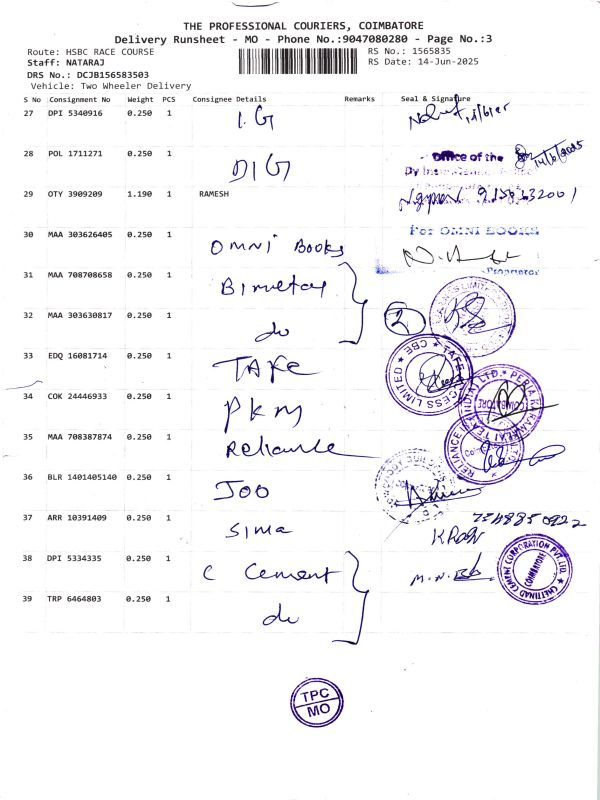 THE PROFESSIONAL COURIERS, COIMBATORE
Delivery Runsheet - MO - Phone No.:9047080280 - Page No.:3
Route: HSBC RACE COURSE
RS No.: 1565835
Staff: NATARAJ
RS Date: 14-Jun-2025
DRS No.: DCJB156583503
Vehicle: Two Wheeler Delivery
S No Consignment No Weight PCS Consignee Details Remarks Seal & Signature
27 DPI 5340916 0.250 1 I.G
28 POL 1711271 0.250 1 DIG Office of the 14/6/2025
29 OTY 3909209 1.190 1 RAMESH
30 MAA 303626405 0.250 1 OMNI Books For OMNI BOOKS
Proprietor
31 MAA 708708658 0.250 1
32 MAA 303630817 0.250 1 do 2
33 EDQ 16081714 0.250 1 TAKE
34 COK 24446933 0.250 1 PKM
35 MAA 708387874 0.250 1 Reliance
36 BLR 1401405140 0.250 1 JOO
37 ARR 10391409 0.250 1 Sima
38 DPI 5334335 0.250 1 C Cement CHETTINAD CEMENT CORPORATION PVT LTD. COIMBATORE
39 TRP 6464803 0.250 1 do
TPC
MO